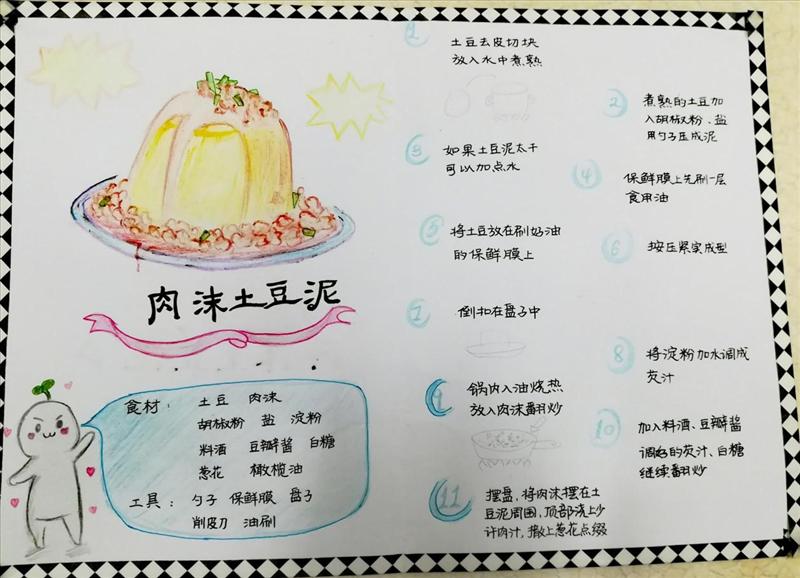 肉沫土豆泥
食材： 土豆 肉沫
胡椒粉 盐 淀粉
料酒 豆瓣酱 白糖
葱花 橄榄油
工具： 勺子 保鲜膜 盘子
削皮刀 油刷
1 土豆去皮切块
放入水中煮熟
2 煮熟的土豆加
入胡椒粉、盐
用勺子压成泥
3 如果土豆泥太干
可以加点水
4 保鲜膜上先刷一层
食用油
5 将土豆放在刷好油
的保鲜膜上
6 按压紧实成型
7 倒扣在盘子中
8 将淀粉加水调成
芡汁
9 锅内入油烧热
放入肉沫翻炒
10 加入料酒、豆瓣酱
调好的芡汁、白糖
继续翻炒
11 摆盘，将肉沫摆在土
豆泥周围，顶部浇上少
许肉汁，撒上葱花点缀